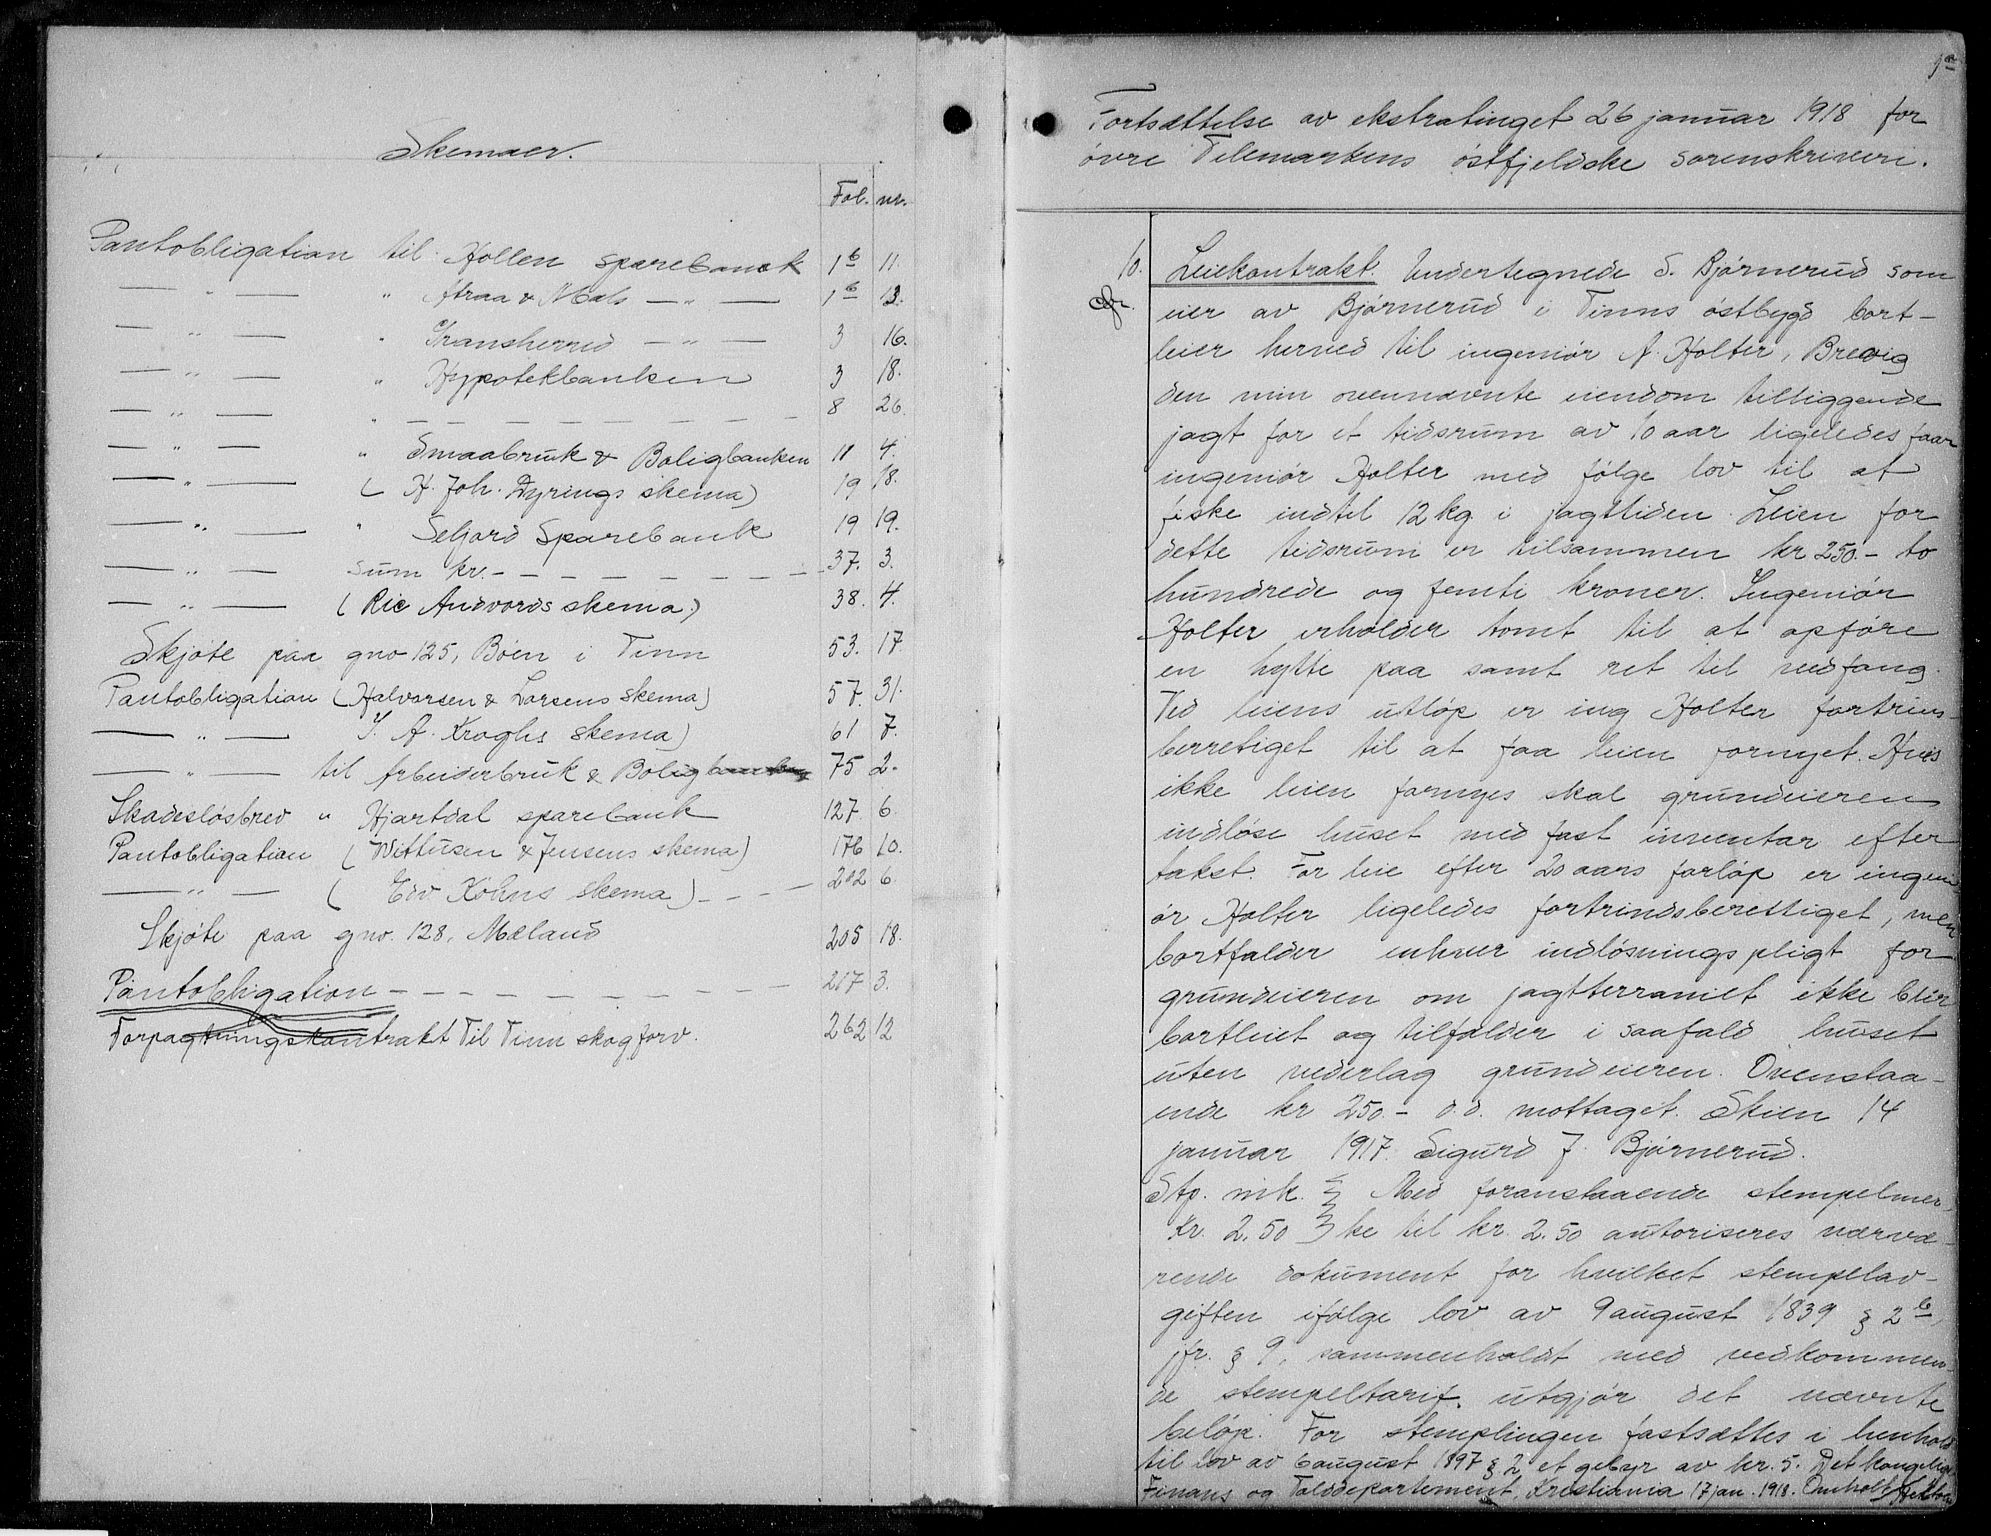 Skemaer.
Fol. nr.
Pantobligation til Hollen sparebank 1b 11.
— " — " Atraa & Mæls — " — 1b 13.
— " — " Gransherred — " — 3 16.
— " — " Hypotekbanken 3 18.
— " — " — — — — — — — — 8 26.
— " — " Smaabruk & Boligbanken 11 4.
— " — ( H. Joh. Dyrings skema) 19 18.
— " — " Seljord Sparebank 19 19.
— " — sum kr. — — — — — — — — 37. 3.
— " — (Ric Andvords skema.) 38. 4.
Skjøte paa gno 125, Bøen i Tinn 53. 17
Pantobligation (Halvorsen & Larsens skema) 57. 31.
— " — A. Kroghs skema) 61 7.
— " — til Arbeiderbruk & Boligbanken 75 2.
Skadesløsbrev " Hjartdal sparebank 127. 6
Pantobligation (Wittusen & Jensens skema) 176 10.
— " — ( Edv Köhns skema) — — — 202 6
Skjøte paa gno. 128, Mæland 205 18.
Pantobligation — — — — — — — — — 217 3.
Forpagtningskontrakt Til Tinn skogforv. 262 12
1a
Fortsættelse av ekstratinget 26 januar 1918 for
øvre Telemarkens østfjeldske sorenskriveri.
10. Leiekontrakt. Undertegnede S. Bjørnerud som
eier av Bjørnerud i Tinns østbygd bort-
leier herved til ingeniør A. Holter, Brevig
den min ovennævnte eiendom tilliggende
jagt for et tidsrum av 10 aar ligeledes faar
ingeniør Holter med følge lov til at
fiske indtil 12 kg i jagttiden. Leien for
dette tidsrum er tilsammen kr 250.- to
hundrede og femti kroner. Ingeniør
Holter erholder tomt til at opføre
en hytte paa samt ret til vedfang.
Ved leiens utløp er ing Holter fortrins-
berretiget til at faa leien fornyet. Hvis
ikke leien fornyes skal grundeieren
indløse huset med fast inventar efter
takst. For leie efter 20 aars forløp er ingeni
ør Holter ligeledes fortrindsberettiget, men
bortfalder enhver indløsningspligt for
grundeieren om jagtterrænet ikke blir
bortleiet og tilfalder i saafald huset
uten vederlag grundeieren. Ovenstaa-
ende kr 250.- d.d. mottaget. Skien 14
januar 1917. Sigurd J. Bjørnerud.
Stp. mk. Med foranstaaende stempelmer-
Kr. 2.50 ke til kr. 2.50 autoriseres nærvæ-
rende dokument for hvilket stempelav-
giften ifølge lov av 9 august 1839 § 2b,
jfr. § 9, sammenholdt med vedkommen-
de stempeltarif, utgjør det nævnte
beløp. For stemplingen fastsættes i henhold
til lov av 6 august 1897 § 2 et gebyr av kr. 5. Det kongelige
Finans og Tolddepartement, Kristiania 17 jan. 1918.